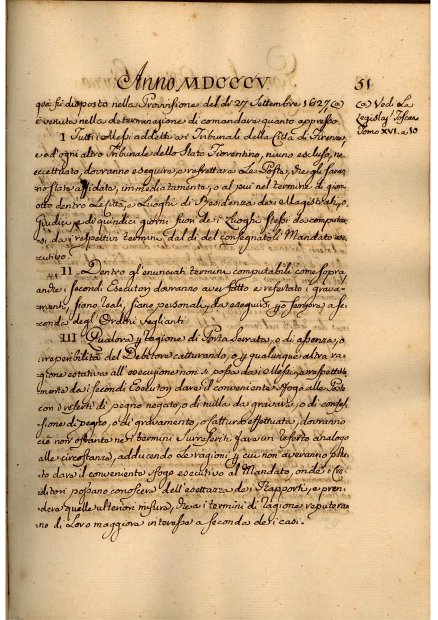 Anno MDCCCV.
51
que fù disposto nella Provvisione del dì 27 Settembre 1627 (a)
è venuta nella determinazione di comandare quanto appresso.
(a) Vedi La
Legislaz Toscana
Tomo XVI. a 10
I Tutti i Messi addetti ai Tribunali della Città di Firenze,
e ad ogni altro Tribunale dello Stato Fiorentino, niuno escluso, ne
eccettuato, dovranno eseguire, e refertare Le Poste, che gli saran
no state affidate, immediatamente, o al piu nel termine di giorni
otto dentro Le Città, e Luoghi di Presidenza dei Magistrati, o
Giudici, e di quindici giorni fuori dei Luoghi stessi da computar
si, dai respettivi termini dal dì del consegnatoli Mandato ese
cutivo.
II Dentro gl'enunciati termini computabili come sopra,
anche i secondi Esecutori dovranno aver fatto e refertato i grava
menti, siano reali, siano personali, da eseguirsi sempre a se
conda degl'Ordini veglianti.
III Qualora per ragione di Porta Serrata, o di assenza, o
irreperibilità del Debitore catturando, o per qualunque altra ra
gione ostativa all'esecuzione non si possa dai Messi, e respettiva
mente dai secondi Esecutori dare il conveniente sfogo alle Poste
con i referti di pegno negato, o di nulla da gravare, o di confes
sione di pegno, o di gravamento, o cattura effettuata, dovranno
ciò non ostante nei termini surreferiti fare un referto analogo
alle circostanze, adducendo Le ragioni per cui non averanno potu
to dare il conveniente sfogo esecutivo al Mandato, onde i Cre
ditori possano conoscere dell'esattezza dei Rapporti, e pren
dere quelle ulteriori misure, che ai termini di ragione reputeran
no di Loro maggiore interesse a seconda dei casi.